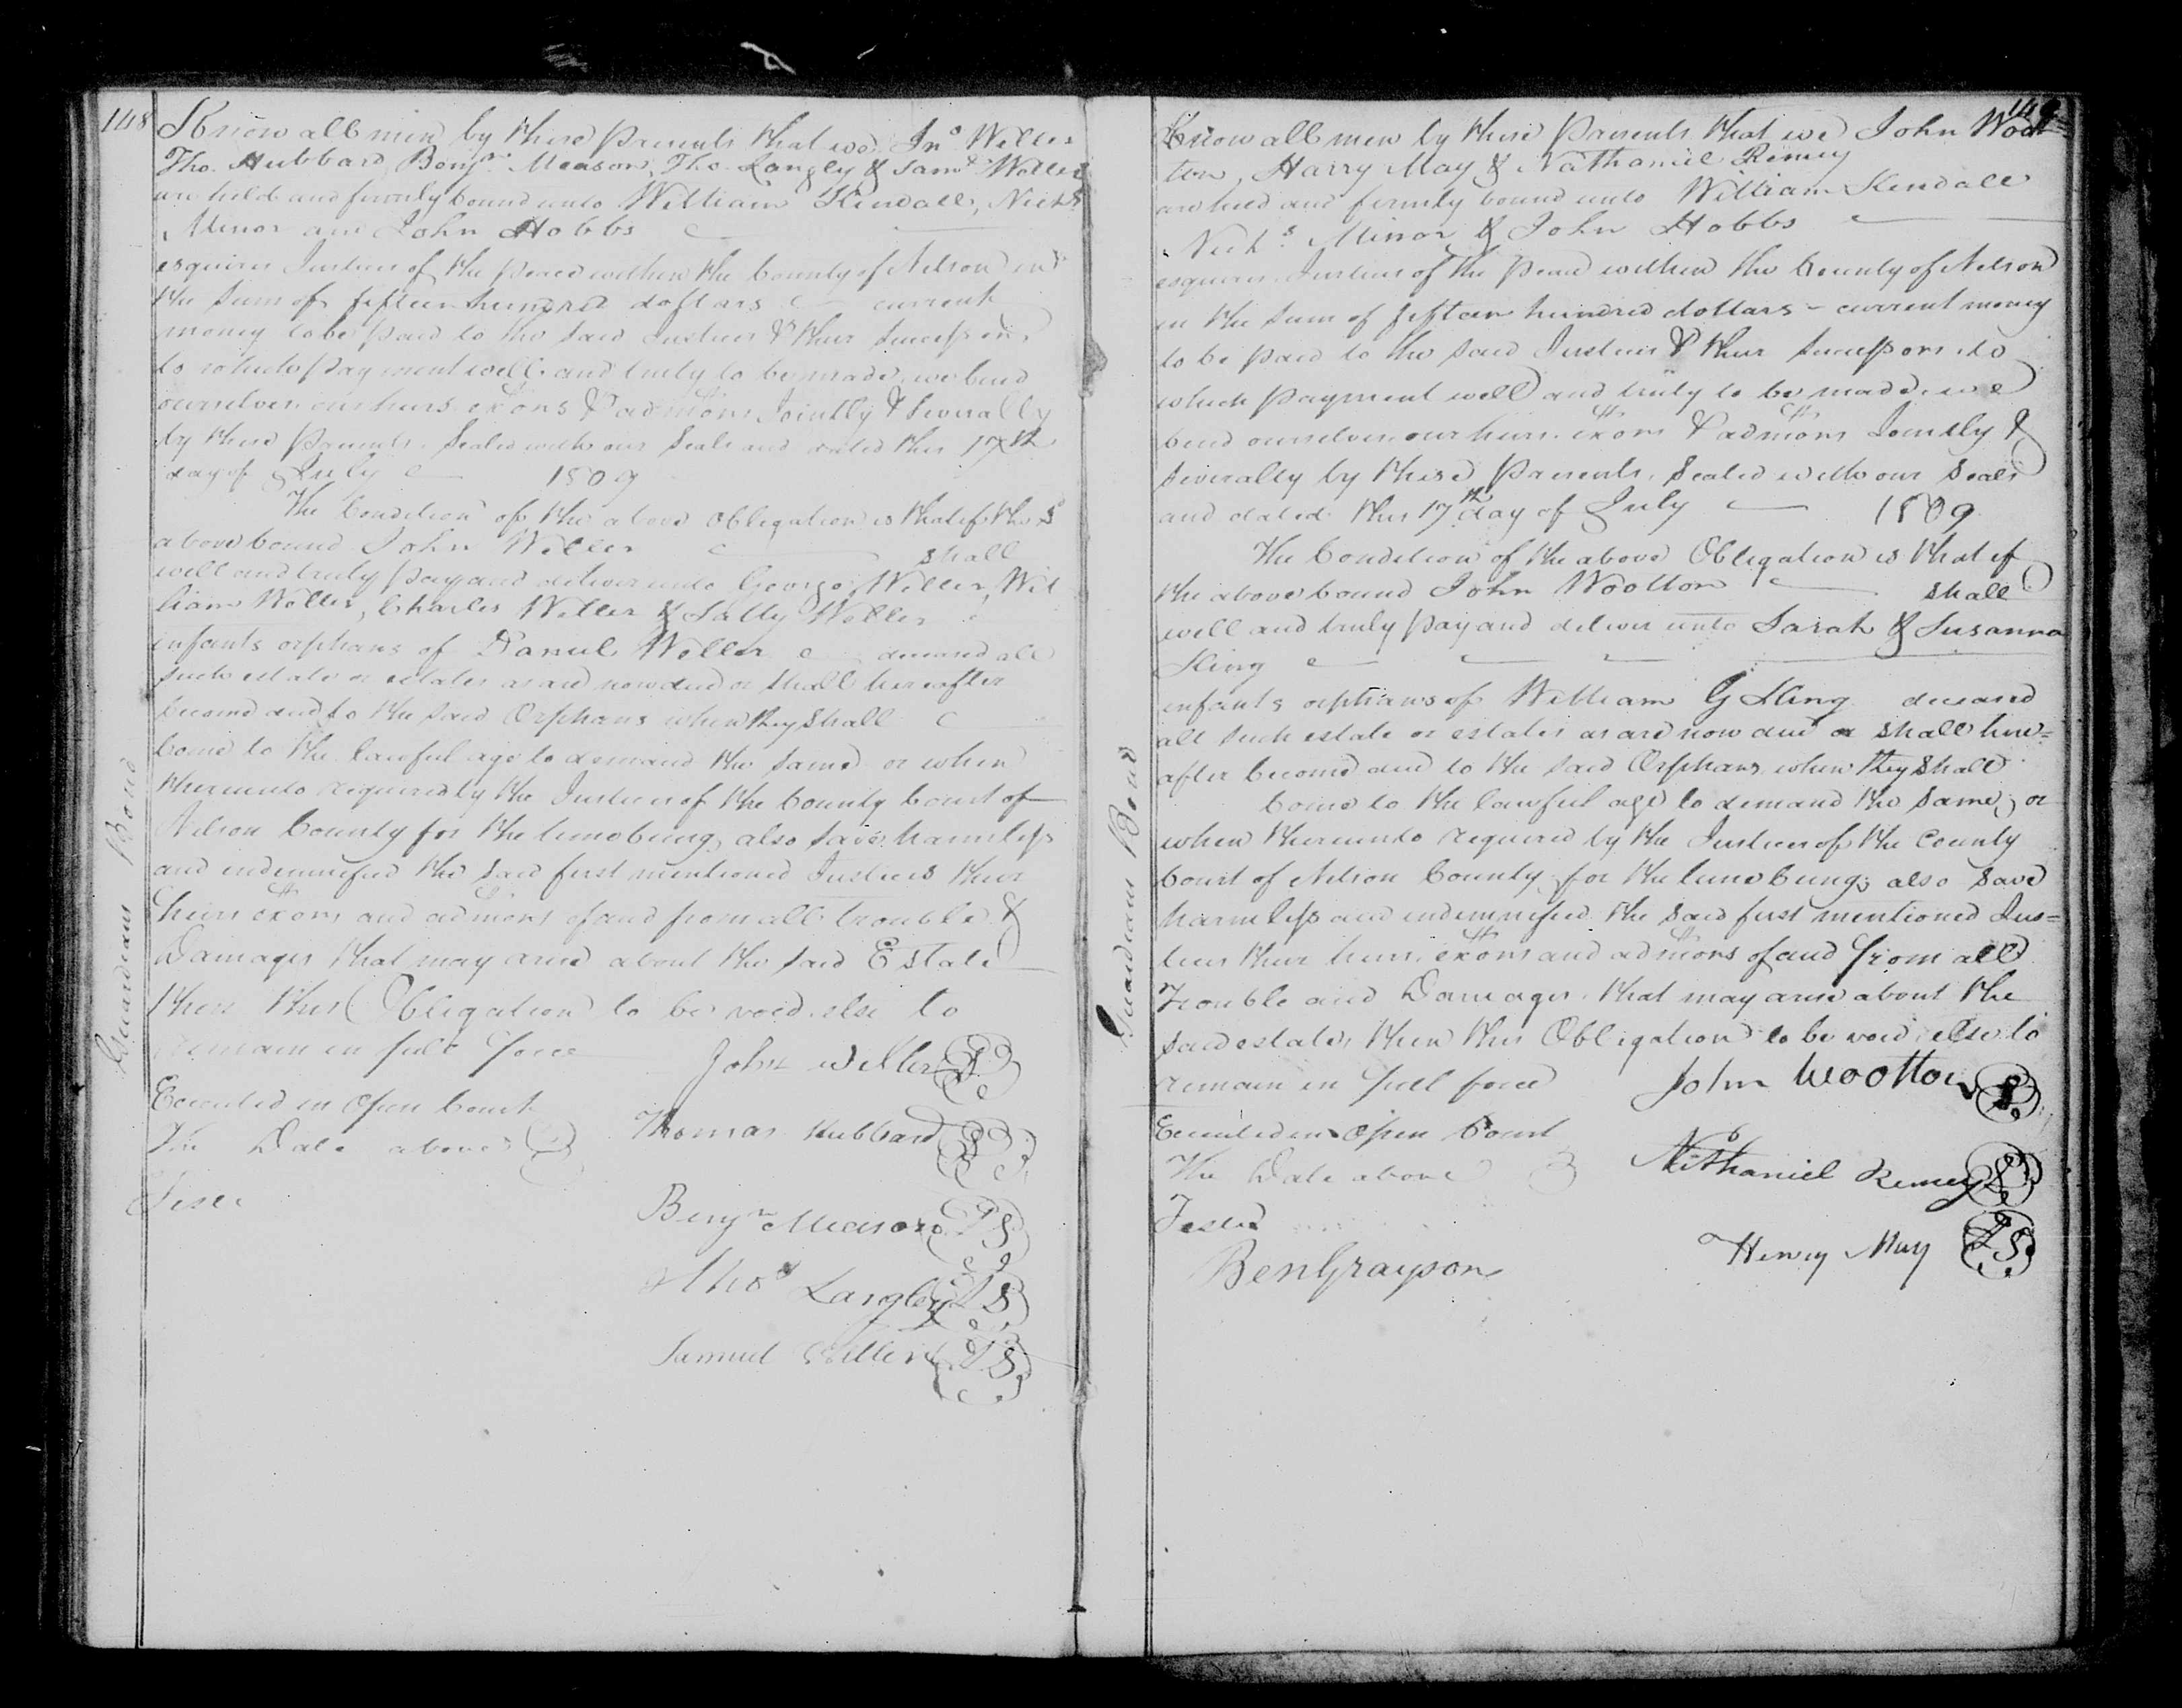 148
Know all men by these presents that we Jno. Weller
Tho. Hubbard, Benjn. Meason, Tho. Langly & Saml. Weller
are held and firmly bound unto William Kendall, Nichs.
Minor and John Hobbs
esquires Justices of the peace within the County of Nelson in
the sum of fifteen hundred dollars current
money to be paid to the said Justices & their successors,
to which payment well and truly to be made, we bend
ourselves our heirs exōns & admōns Jointly & severally
by these presents. Sealed with our seals and dated this 17th
day of July 1809
The Condition of the above obligation is that if the
above bound John Weller shall
well and truly pay and deliver unto George Weller, Wil
liam Weller, Charles Weller & Sally Weller
infants orphans of Daniel Weller deceased all
such estate or estates as are now due or shall hereafter
become due to the said Orphans when they shall
Come to the lawful age to demand the same or when
thereunto required by the Justices of the County Court of
Nelson County for the time being, also save harmless
and indemnified the said first mentioned Justices their
heirs exōns and admōns of and from all trouble &
Damages that may arise about the said Estate
then this Obligation to be void else to
remain in full force
John Weller LS
Executed in open Court
the Date above
Thomas Hubbard LS
Teste
Benjn Meason LS
Thos Langley LS
Samuel Weller LS
Guardians Bond
149
Know all men by these presents that we John Woot=
ton, Harry May & Nathaniel Remey
are held and firmly bound unto William Kendall
Nichs. Minor & John Hobbs
esquires Justices of the peace within the County of Nelson
in the sum of fifteen hundred dollars - current money
to be paid to the said Justices & their successors to
which payment well and truly to be made, we
bend ourselves our heirs exōns & admōns Jointly &
severally by these presents, Sealed with our seals
and dated this 17th day of July 1809
The Condition of the above Obligation is that if
the above bound John Wootton shall
well and truly pay and deliver unto Sarah & Susanna
King
infants orphans of William G King deceased
all such estate or estates as are now due or shall here=
after become due to the said Orphans when they shall
Come to the lawful age to demand the same, or
when thereunto required by the Justices of the County
Court of Nelson County for the time being, also save
harmless and indemnified the said first mentioned Jus=
tices their heirs exōns and admōns of and from all
Trouble and Damages that may arise about the
said estate, then this Obligation to be void else to
remain in full force
John Wootton LS
Executed in Open Court
The Date above
Nathaniel Remey LS
Teste
Ben Grayson
Henry May LS
Guardians Bond